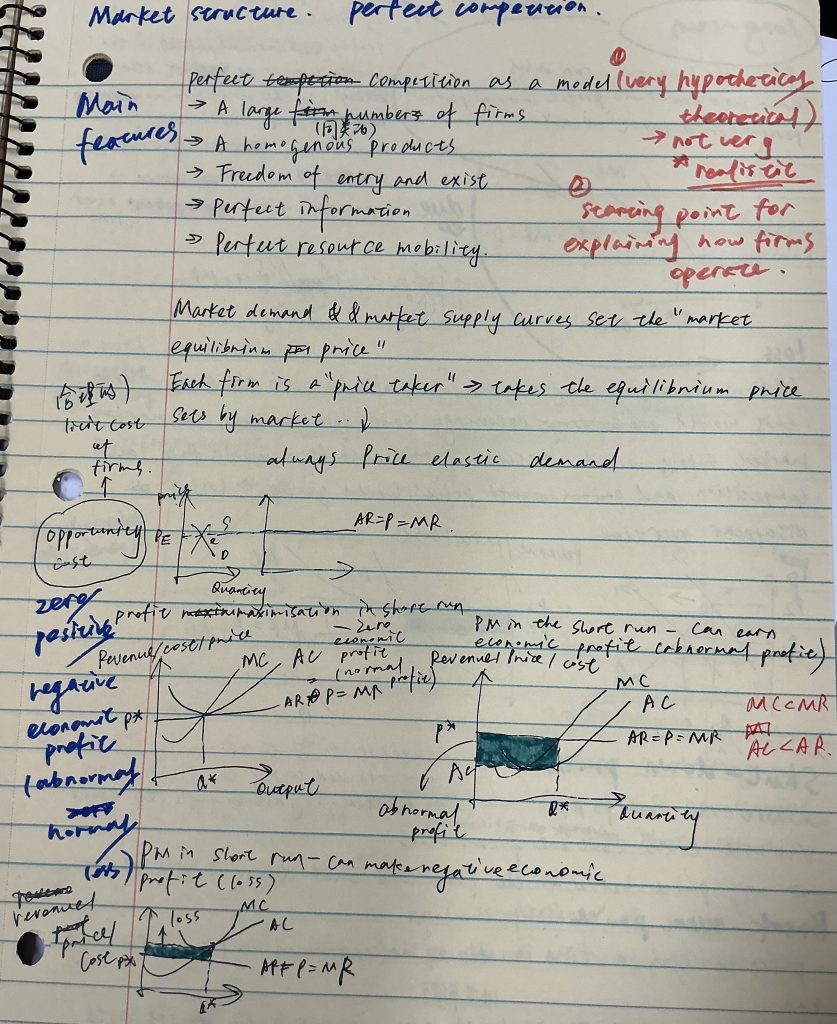 Market structure. perfect competition.
Main features
perfect competition as a model (very hypothetical/
theoretical)
→ not very
* realistic
①
→ A large numbers of firms
→ A homogenous products
→ Freedom of entry and exist
→ Perfect information
→ Perfect resource mobility.
②
starting point for
explaining how firms
operate.
Market demand & & market supply curves set the "market
equilibrium price"
Each firm is a "price taker" → takes the equilibrium price
sets by market .. ↓
always Price elastic demand
合理的)
licit cost
of
firms.
↑
opportunity
cost
price
PE
S
e
D
Quantity
AR=P=MR.
zero/
positive
/
negative
economic
profit
(abnormal
/
normal
/
loss)
profit maximisation in short run
– zero
economic
profit
(normal
profit)
Revenue/cost/price
MC
AC
AR P = MR
P*
Q*
Output
PM in the short run – can earn
economic profit (abnormal profit)
Revenue/Price/cost
MC
AC
AR=P=MR
P*
AC
abnormal
profit
Q*
Quantity
MC<MR
AC<AR.
PM in short run – can make negative economic
profit (loss)
revenue/
price/
cost
P*
↑ loss
MC
AC
AR=P=MR
Q*